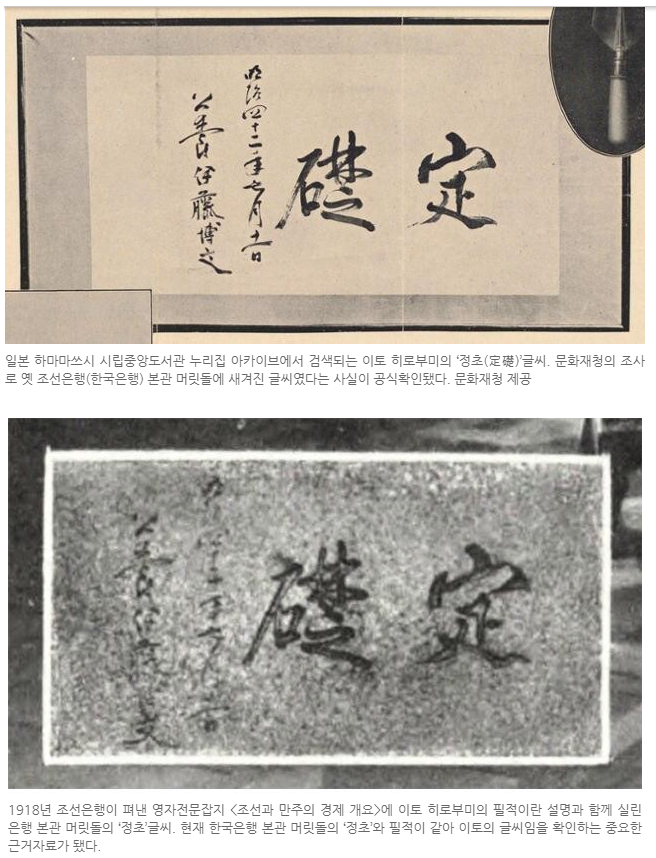 定礎
明治四十二年七月十一日
公爵伊藤博文
일본 하마마쓰시 시립중앙도서관 누리집 아카이브에서 검색되는 이토 히로부미의 ‘정초(定礎)’글씨. 문화재청의 조사
로 옛 조선은행(한국은행) 본관 머릿돌에 새겨진 글씨였다는 사실이 공식확인됐다. 문화재청 제공
定礎
公爵伊藤博文
1918년 조선은행이 펴낸 영자전문잡지 <조선과 만주의 경제 개요>에 이토 히로부미의 필적이란 설명과 함께 실린
은행 본관 머릿돌의 ‘정초’글씨. 현재 한국은행 본관 머릿돌의 ‘정초’와 필적이 같아 이토의 글씨임을 확인하는 중요한
근거자료가 됐다.